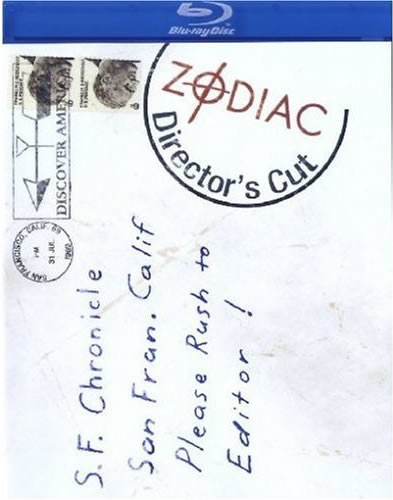 Blu-ray Disc
ZODIAC
Director's Cut
DISCOVER AMERICA
SAN FRANCISCO, CALIF.
PM
31 JUL
S.F. Chronicle
San Fran. Calif
Please Rush to
Editor!